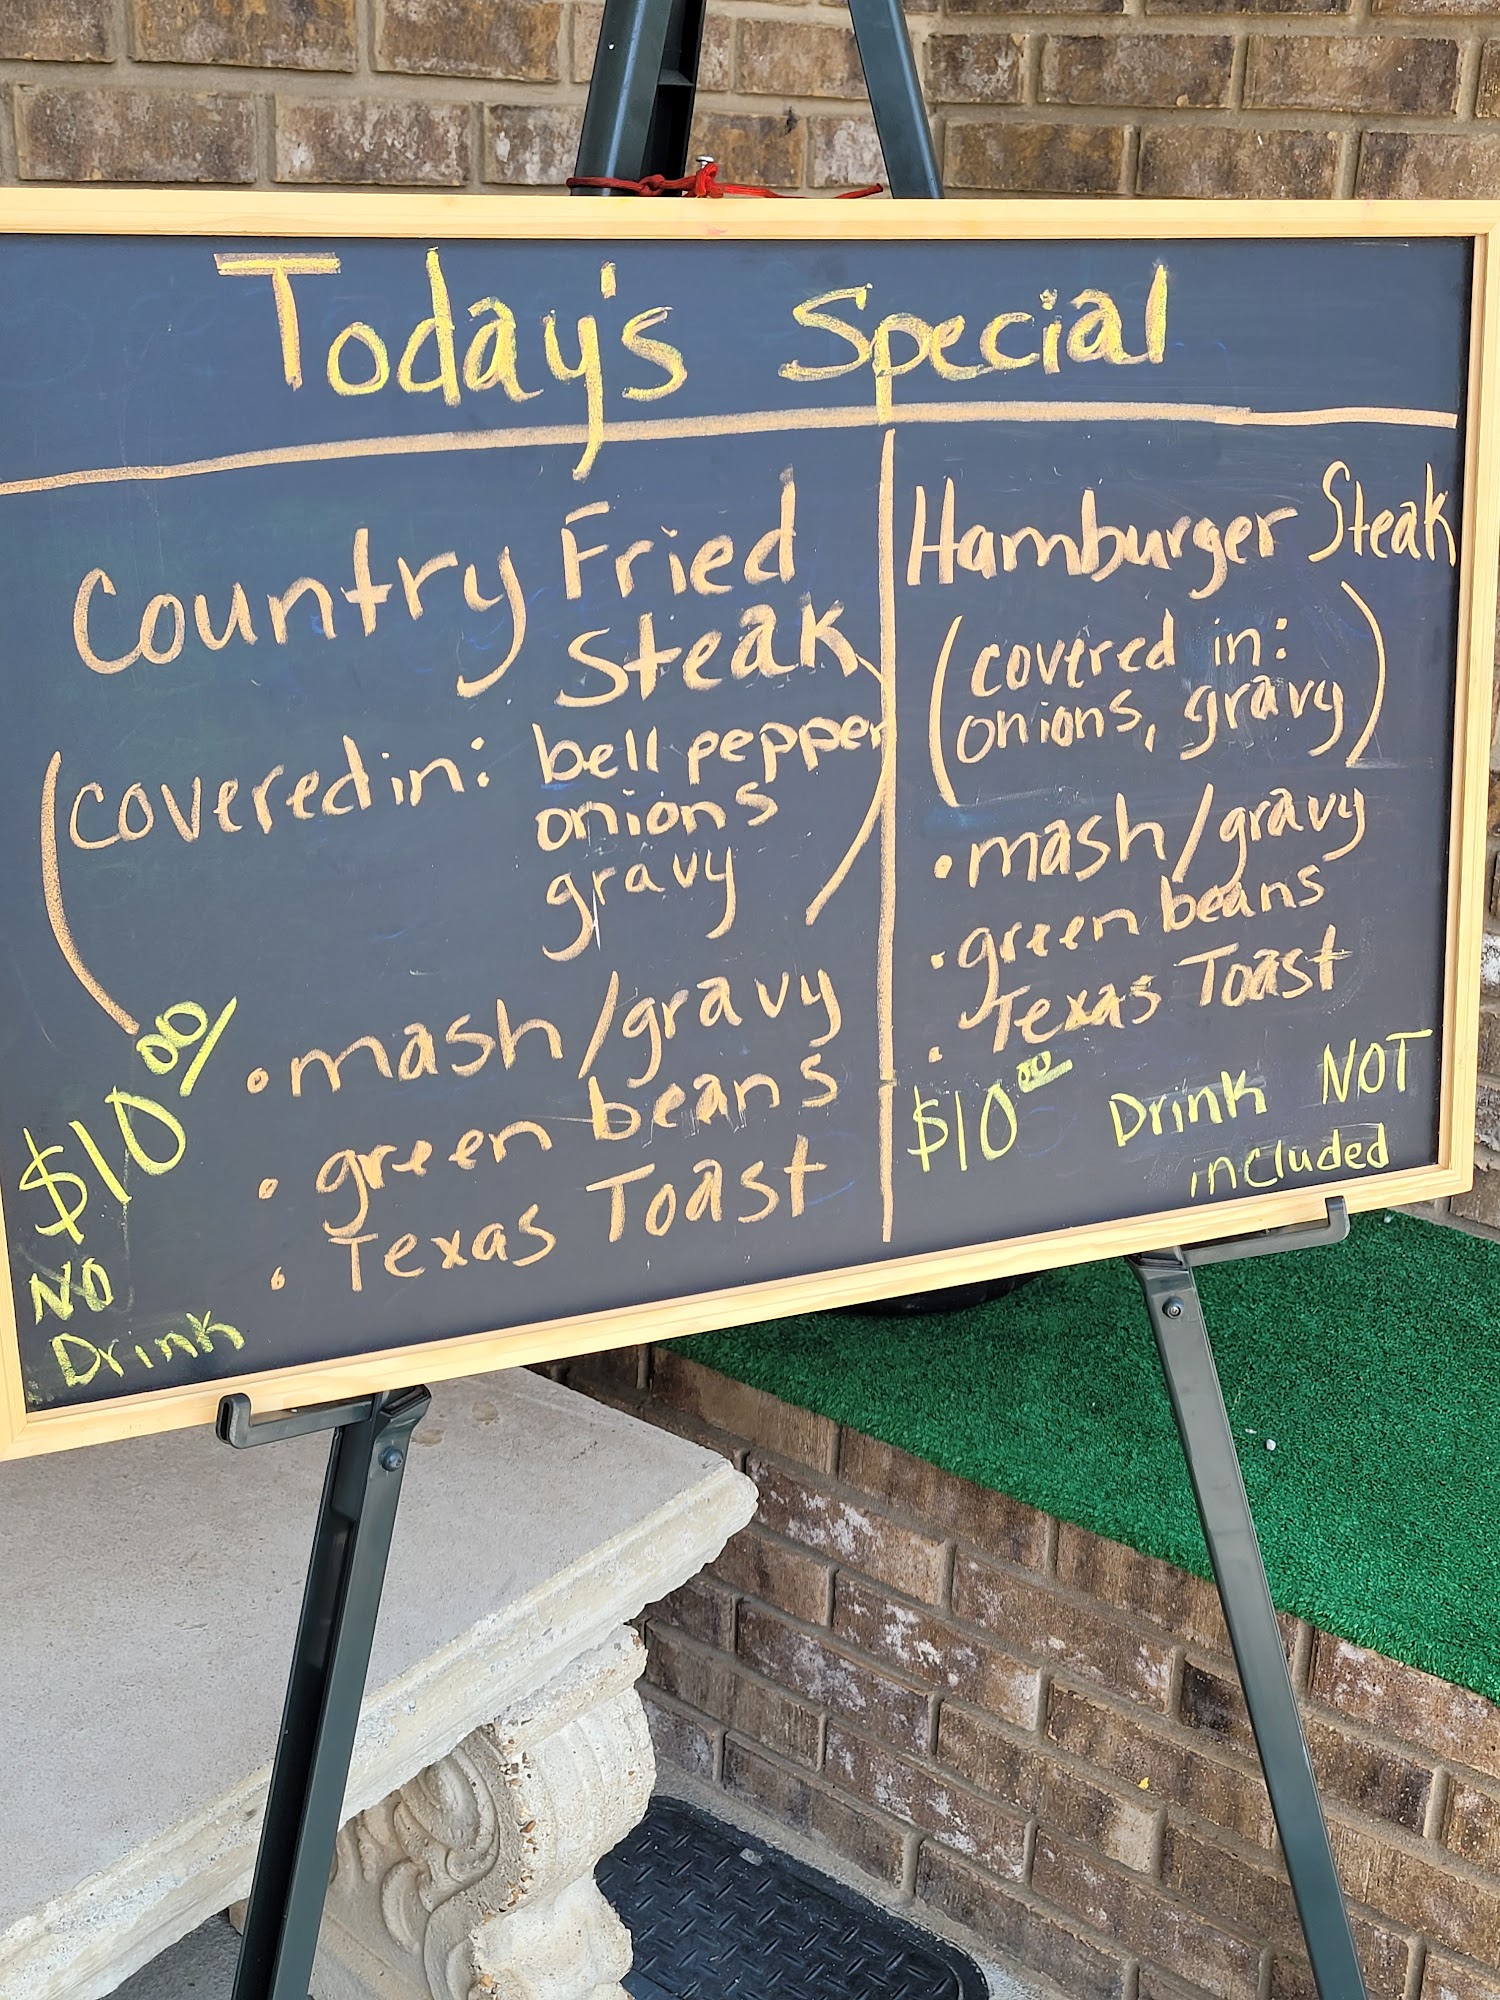 Today's Special
Country Fried
Steak
(covered in: bell pepper
onions
gravy)
• mash/gravy
• green beans
• Texas Toast
$10.00
NO
Drink
Hamburger Steak
(covered in:
onions, gravy)
• mash/gravy
• green beans
• Texas Toast
$10.00 Drink NOT
included